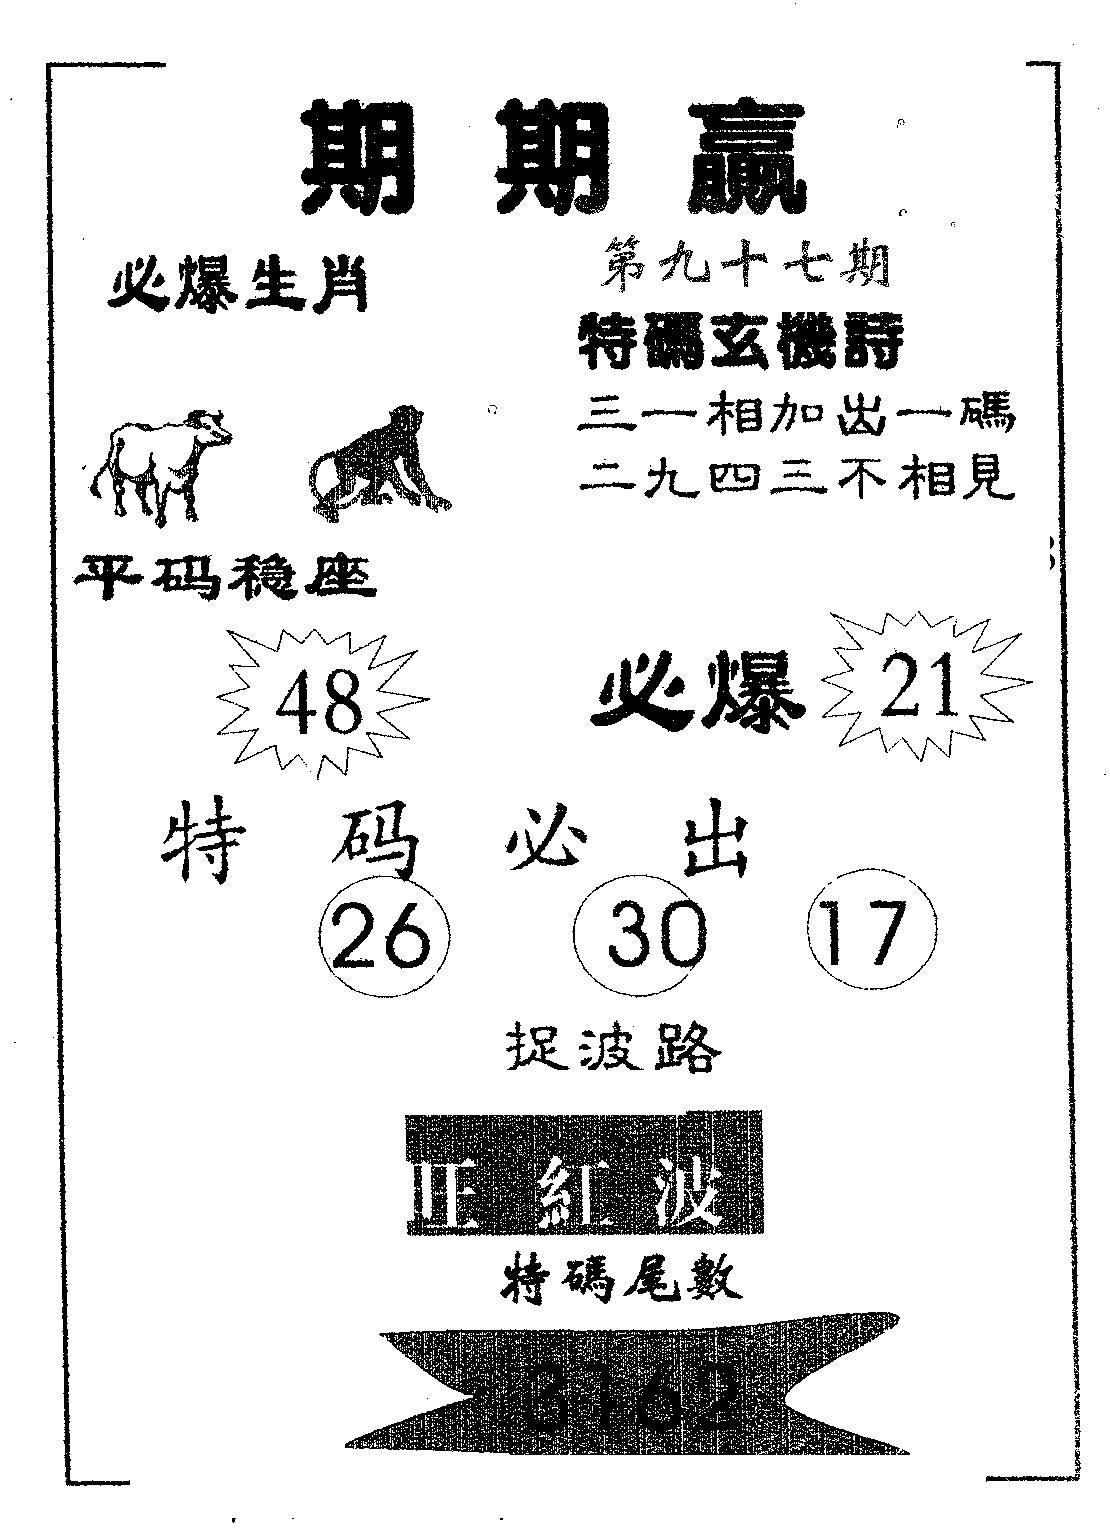 期期赢
第九十七期
必爆生肖
特碼玄機詩
三一相加出一碼
二九四三不相見
平码稳座
48
必爆 21
特码必出
26 30 17
捉波路
旺紅波
特碼尾數
3162